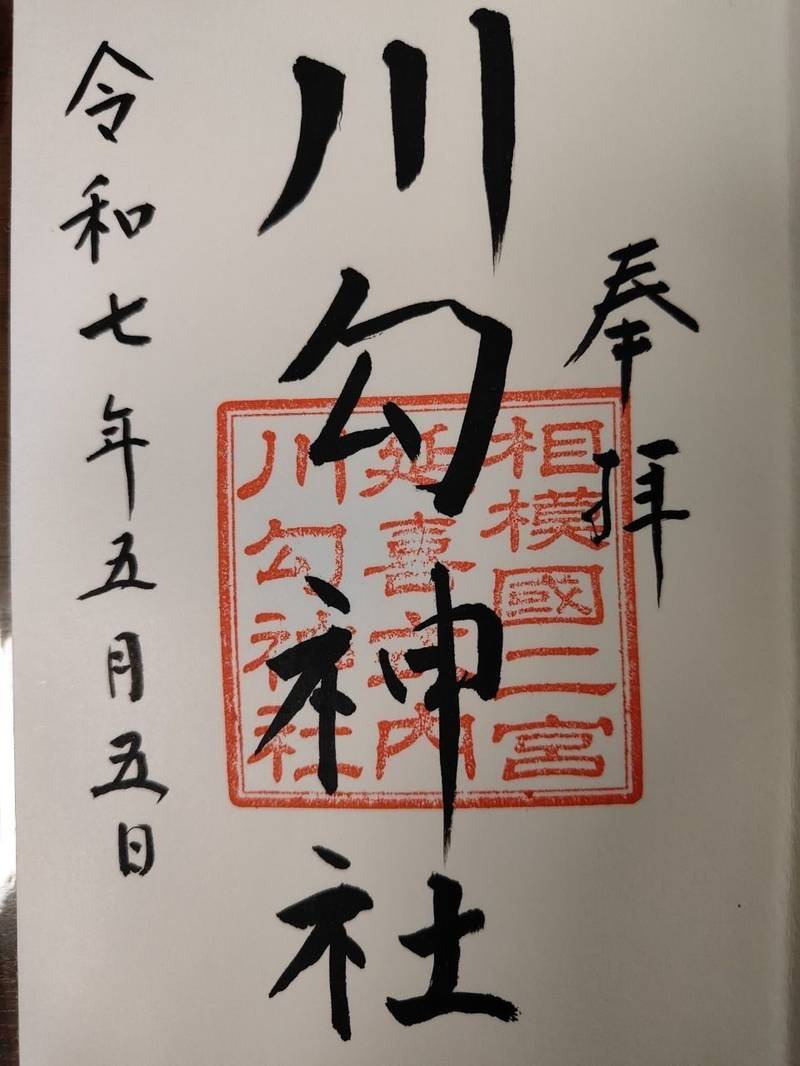 奉拝
川勾神社
相模國二宮
延喜式内
川勾神社
令和七年五月五日